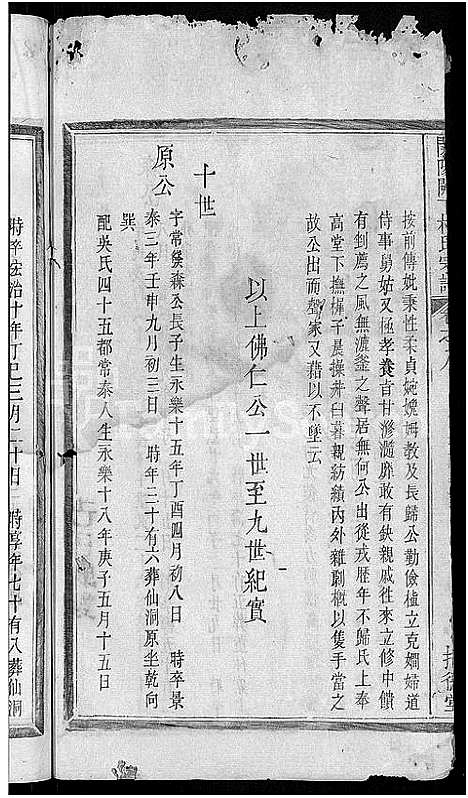 林氏宗譜
卷之八
按前傳妣秉性柔貞婉嫕姆教及長歸公勤儉植立克嫺婦道
侍事舅姑又極孝養旨甘滫瀡靡敢有缺親戚往來立修中饋
有剉薦之風無漉釜之聲居無何公出從戎歷年不歸氏上奉
高堂下撫樨子晨操井臼暮親紡績內外雜劇概以隻手當之
故公出而聲家又藉以不墜云
以上佛仁公一世至九世紀實
十世
原公
字常 森公長子生永樂十五年丁酉四月初八日 時卒景
泰三年壬申九月初三日 時年三十有六葬仙洞原坐乾向
巽
配吳氏四十五都常泰人生永樂十八年庚子五月十五日
時卒宏治十年丁巳三月二十日 時享年七十有八葬仙洞